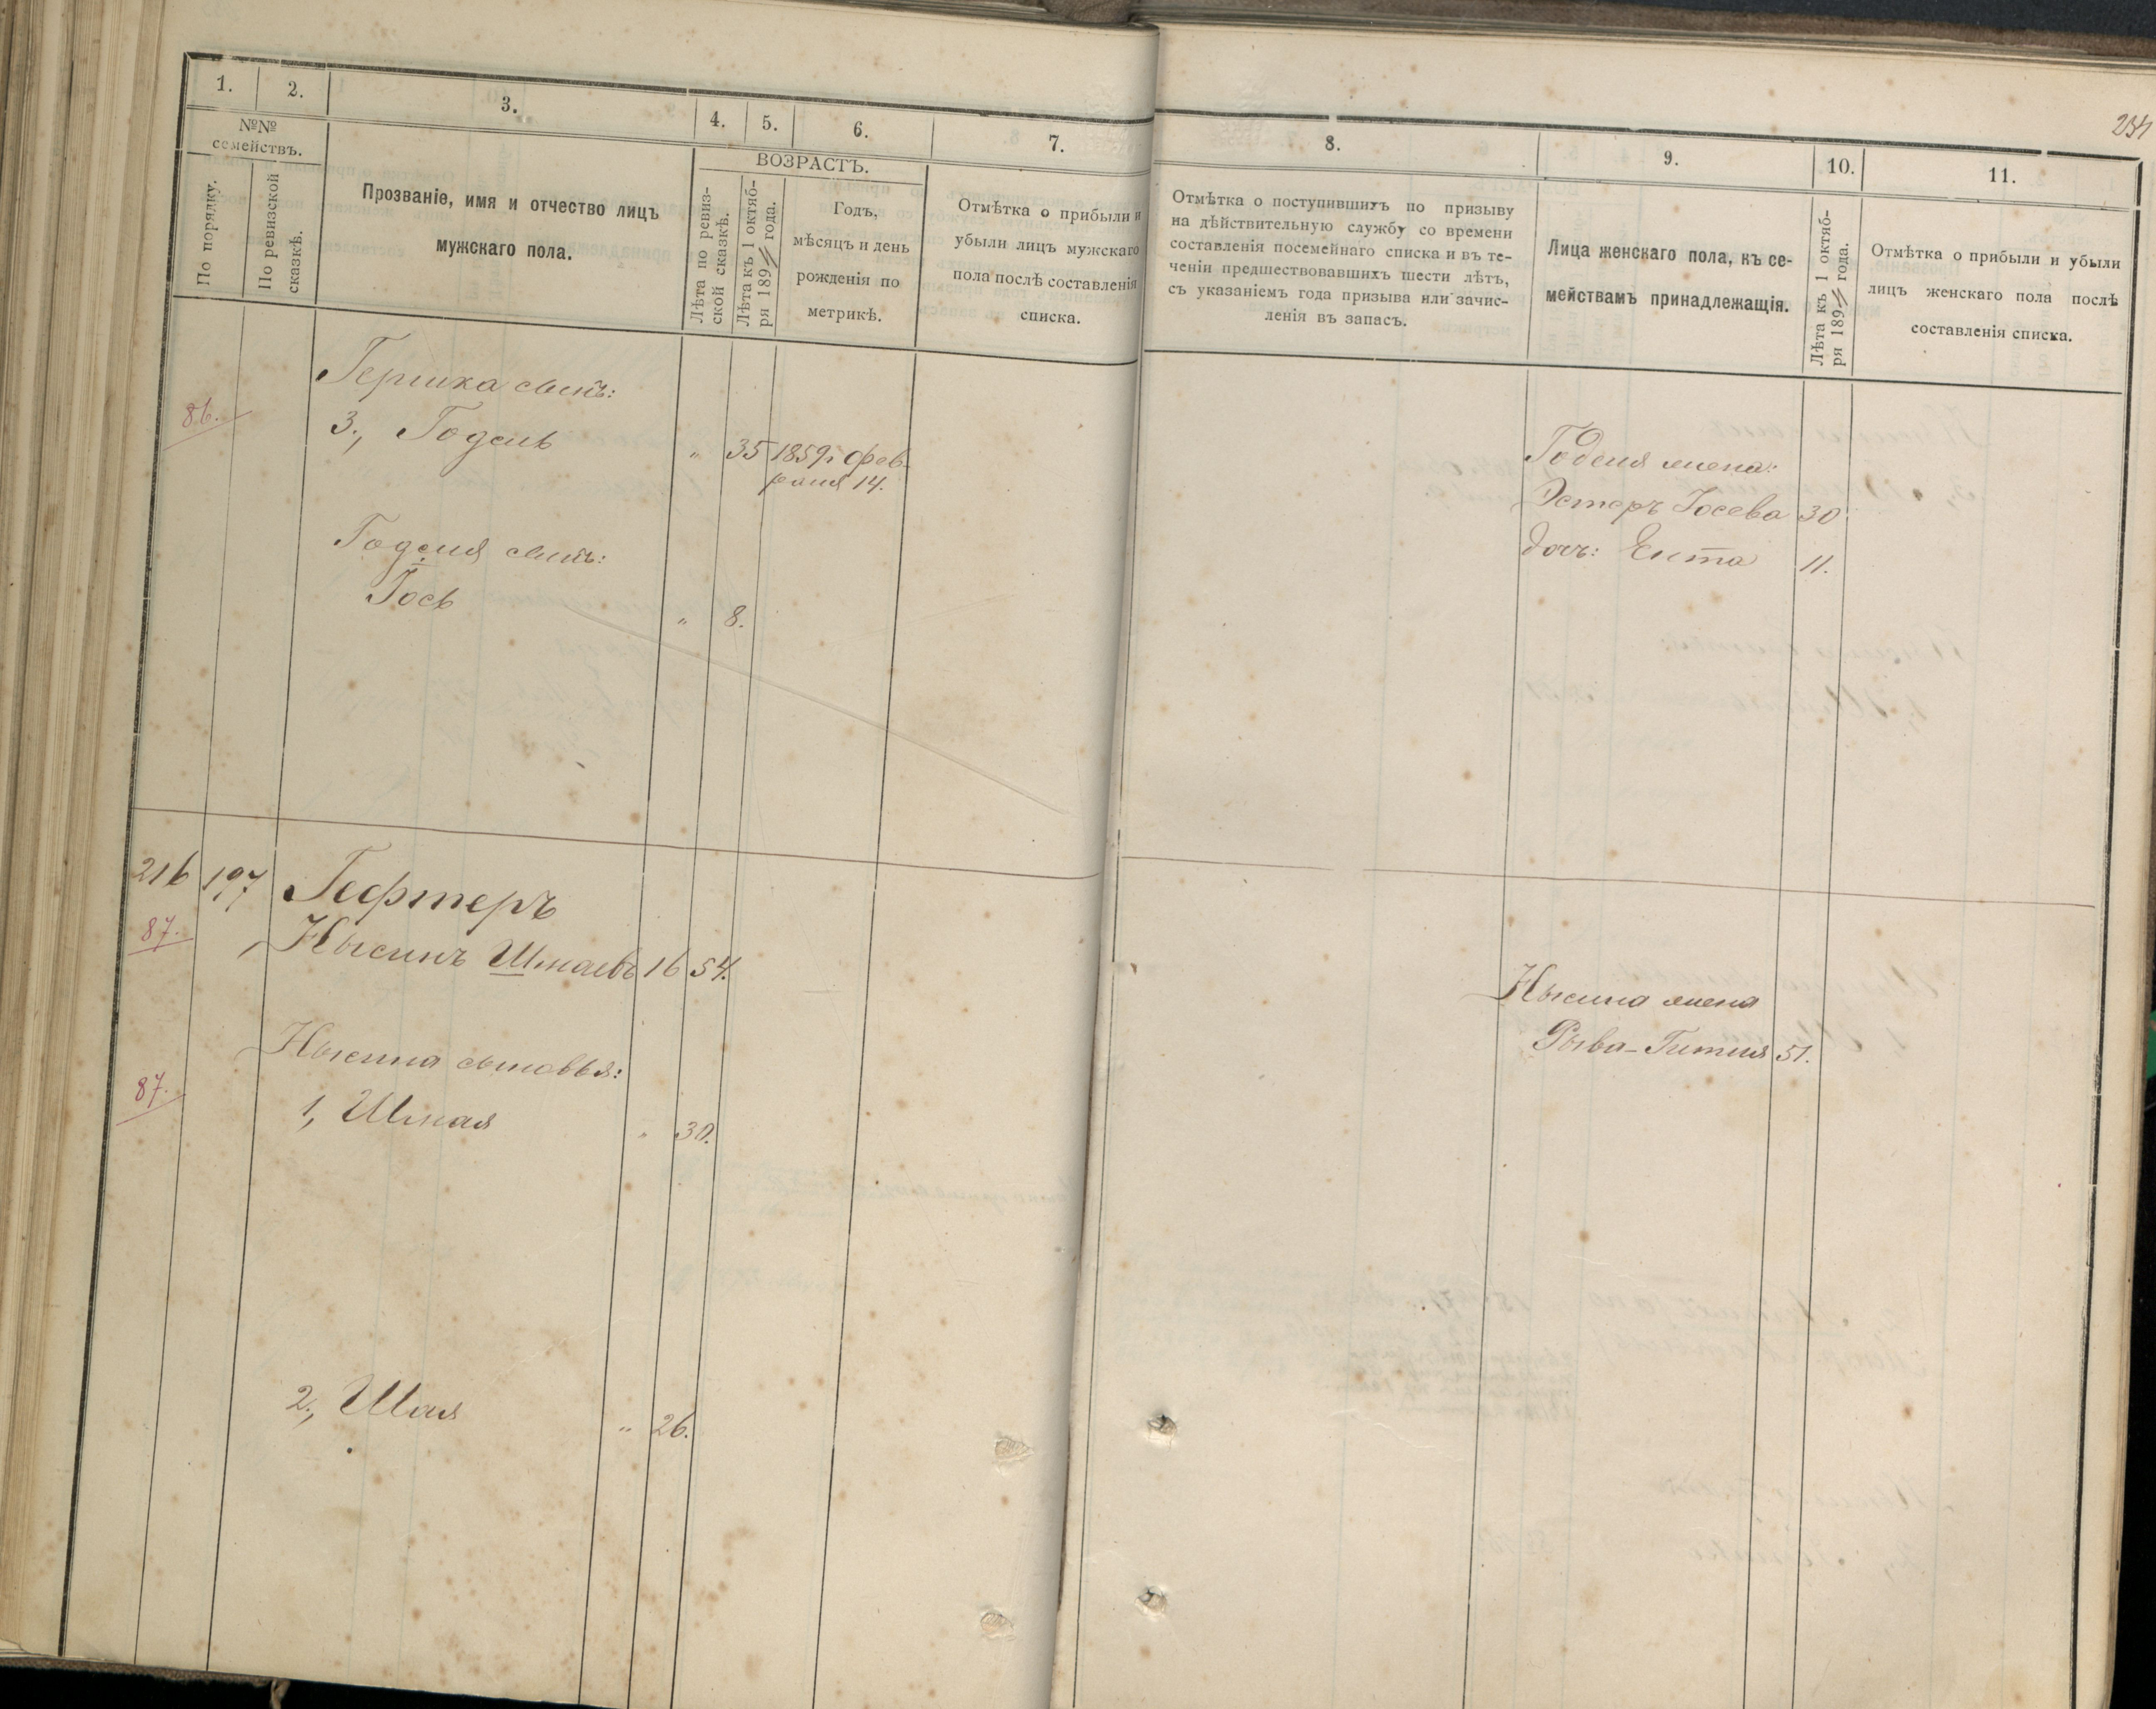 254
1. 2. 3. 4. 5. 6. 7.
№№ семействъ.
По порядку.
По ревизской сказкѣ.
Прозваніе, имя и отчество лицъ
мужскаго пола.
ВОЗРАСТЪ.
Лѣта по ревиз-
ской сказкѣ.
Лѣта къ 1 октяб-
ря 1894 года.
Годъ,
мѣсяцъ и день
рожденія по
метрикѣ.
Отмѣтка о прибыли и
убыли лицъ мужскаго
пола послѣ составленія
списка.
8. 9. 10. 11.
Отмѣтка о поступившихъ по призыву
на дѣйствительную службу со времени
составленія посемейнаго списка и въ те-
ченіи предшествовавшихъ шести лѣтъ,
съ указаніемъ года призыва или зачис-
ленія въ запасъ.
Лица женскаго пола, къ се-
мействамъ принадлежащія.
Лѣта къ 1 октяб-
ря 1894 года.
Отмѣтка о прибыли и убыли
лицъ женскаго пола послѣ
составленія списка.
Гершка сынъ:
86.
3., Годель " 35 1859 г. фев-
раля 14.
Годеля сынъ:
Іось " 8.
Годеля жена:
Эстеръ Іосева 30
дочь: Ента 11.
216 197 Гефтеръ
87. Нысинъ Шмаевъ 16 54.
Нысина сыновья:
87. 1, Шмая " 30.
2., Шая " 26.
Нысина жена
Рыва-Гитля 51.